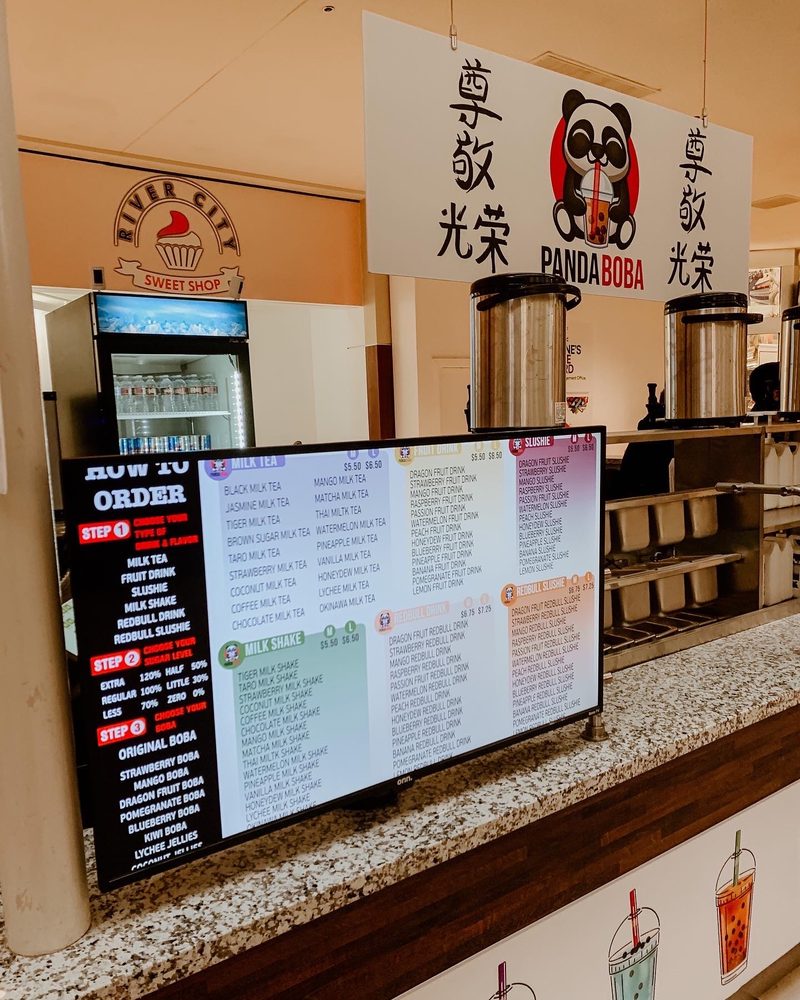 RIVER CITY
SWEET SHOP
尊敬
光荣
PANDABOBA
尊敬
光荣
HOW TO
ORDER
STEP 1 CHOOSE YOUR
TYPE OF
DRINK & FLAVOR
MILK TEA
FRUIT DRINK
SLUSHIE
MILK SHAKE
REDBULL DRINK
REDBULL SLUSHIE
STEP 2 CHOOSE YOUR
SUGAR LEVEL
EXTRA 120% HALF 50%
REGULAR 100% LITTLE 30%
LESS 70% ZERO 0%
STEP 3 CHOOSE YOUR
BOBA
ORIGINAL BOBA
STRAWBERRY BOBA
MANGO BOBA
DRAGON FRUIT BOBA
POMEGRANATE BOBA
BLUEBERRY BOBA
KIWI BOBA
LYCHEE JELLIES
COCONUT JELLIES
MILK TEA M L
$5.50 $6.50
BLACK MILK TEA
JASMINE MILK TEA
TIGER MILK TEA
BROWN SUGAR MILK TEA
TARO MILK TEA
STRAWBERRY MILK TEA
COCONUT MILK TEA
COFFEE MILK TEA
CHOCOLATE MILK TEA
MANGO MILK TEA
MATCHA MILK TEA
THAI MILTK TEA
WATERMELON MILK TEA
PINEAPPLE MILK TEA
VANILLA MILK TEA
HONEYDEW MILK TEA
LYCHEE MILK TEA
OKINAWA MILK TEA
MILK SHAKE M L
$5.50 $6.50
TIGER MILK SHAKE
TARO MILK SHAKE
STRAWBERRY MILK SHAKE
COCONUT MILK SHAKE
COFFEE MILK SHAKE
CHOCOLATE MILK SHAKE
MANGO MILK SHAKE
MATCHA MILK SHAKE
THAI MILTK SHAKE
WATERMELON MILK SHAKE
PINEAPPLE MILK SHAKE
VANILLA MILK SHAKE
HONEYDEW MILK SHAKE
LYCHEE MILK SHAKE
OKINAWA MILK SHAKE
FRUIT DRINK M L
$5.50 $6.50
DRAGON FRUIT DRINK
STRAWBERRY FRUIT DRINK
MANGO FRUIT DRINK
RASPBERRY FRUIT DRINK
PASSION FRUIT DRINK
WATERMELON FRUIT DRINK
PEACH FRUIT DRINK
HONEYDEW FRUIT DRINK
BLUEBERRY FRUIT DRINK
PINEAPPLE FRUIT DRINK
BANANA FRUIT DRINK
POMEGRANATE FRUIT DRINK
LEMON FRUIT DRINK
REDBULL DRINK M L
$6.75 $7.25
DRAGON FRUIT REDBULL DRINK
STRAWBERRY REDBULL DRINK
MANGO REDBULL DRINK
RASPBERRY REDBULL DRINK
PASSION FRUIT REDBULL DRINK
WATERMELON REDBULL DRINK
PEACH REDBULL DRINK
HONEYDEW REDBULL DRINK
BLUEBERRY REDBULL DRINK
PINEAPPLE REDBULL DRINK
BANANA REDBULL DRINK
POMEGRANATE REDBULL DRINK
LEMON REDBULL DRINK
SLUSHIE M L
$5.50 $6.50
DRAGON FRUIT SLUSHIE
STRAWBERRY SLUSHIE
MANGO SLUSHIE
RASPBERRY SLUSHIE
PASSION FRUIT SLUSHIE
WATERMELON SLUSHIE
PEACH SLUSHIE
HONEYDEW SLUSHIE
BLUEBERRY SLUSHIE
PINEAPPLE SLUSHIE
BANANA SLUSHIE
POMEGRANATE SLUSHIE
LEMON SLUSHIE
REDBULL SLUSHIE M L
$6.75 $7.25
DRAGON FRUIT REDBULL SLUSHIE
STRAWBERRY REDBULL SLUSHIE
MANGO REDBULL SLUSHIE
RASPBERRY REDBULL SLUSHIE
PASSION FRUIT REDBULL SLUSHIE
WATERMELON REDBULL SLUSHIE
PEACH REDBULL SLUSHIE
HONEYDEW REDBULL SLUSHIE
BLUEBERRY REDBULL SLUSHIE
PINEAPPLE REDBULL SLUSHIE
BANANA REDBULL SLUSHIE
POMEGRANATE REDBULL SLUSHIE
onn.